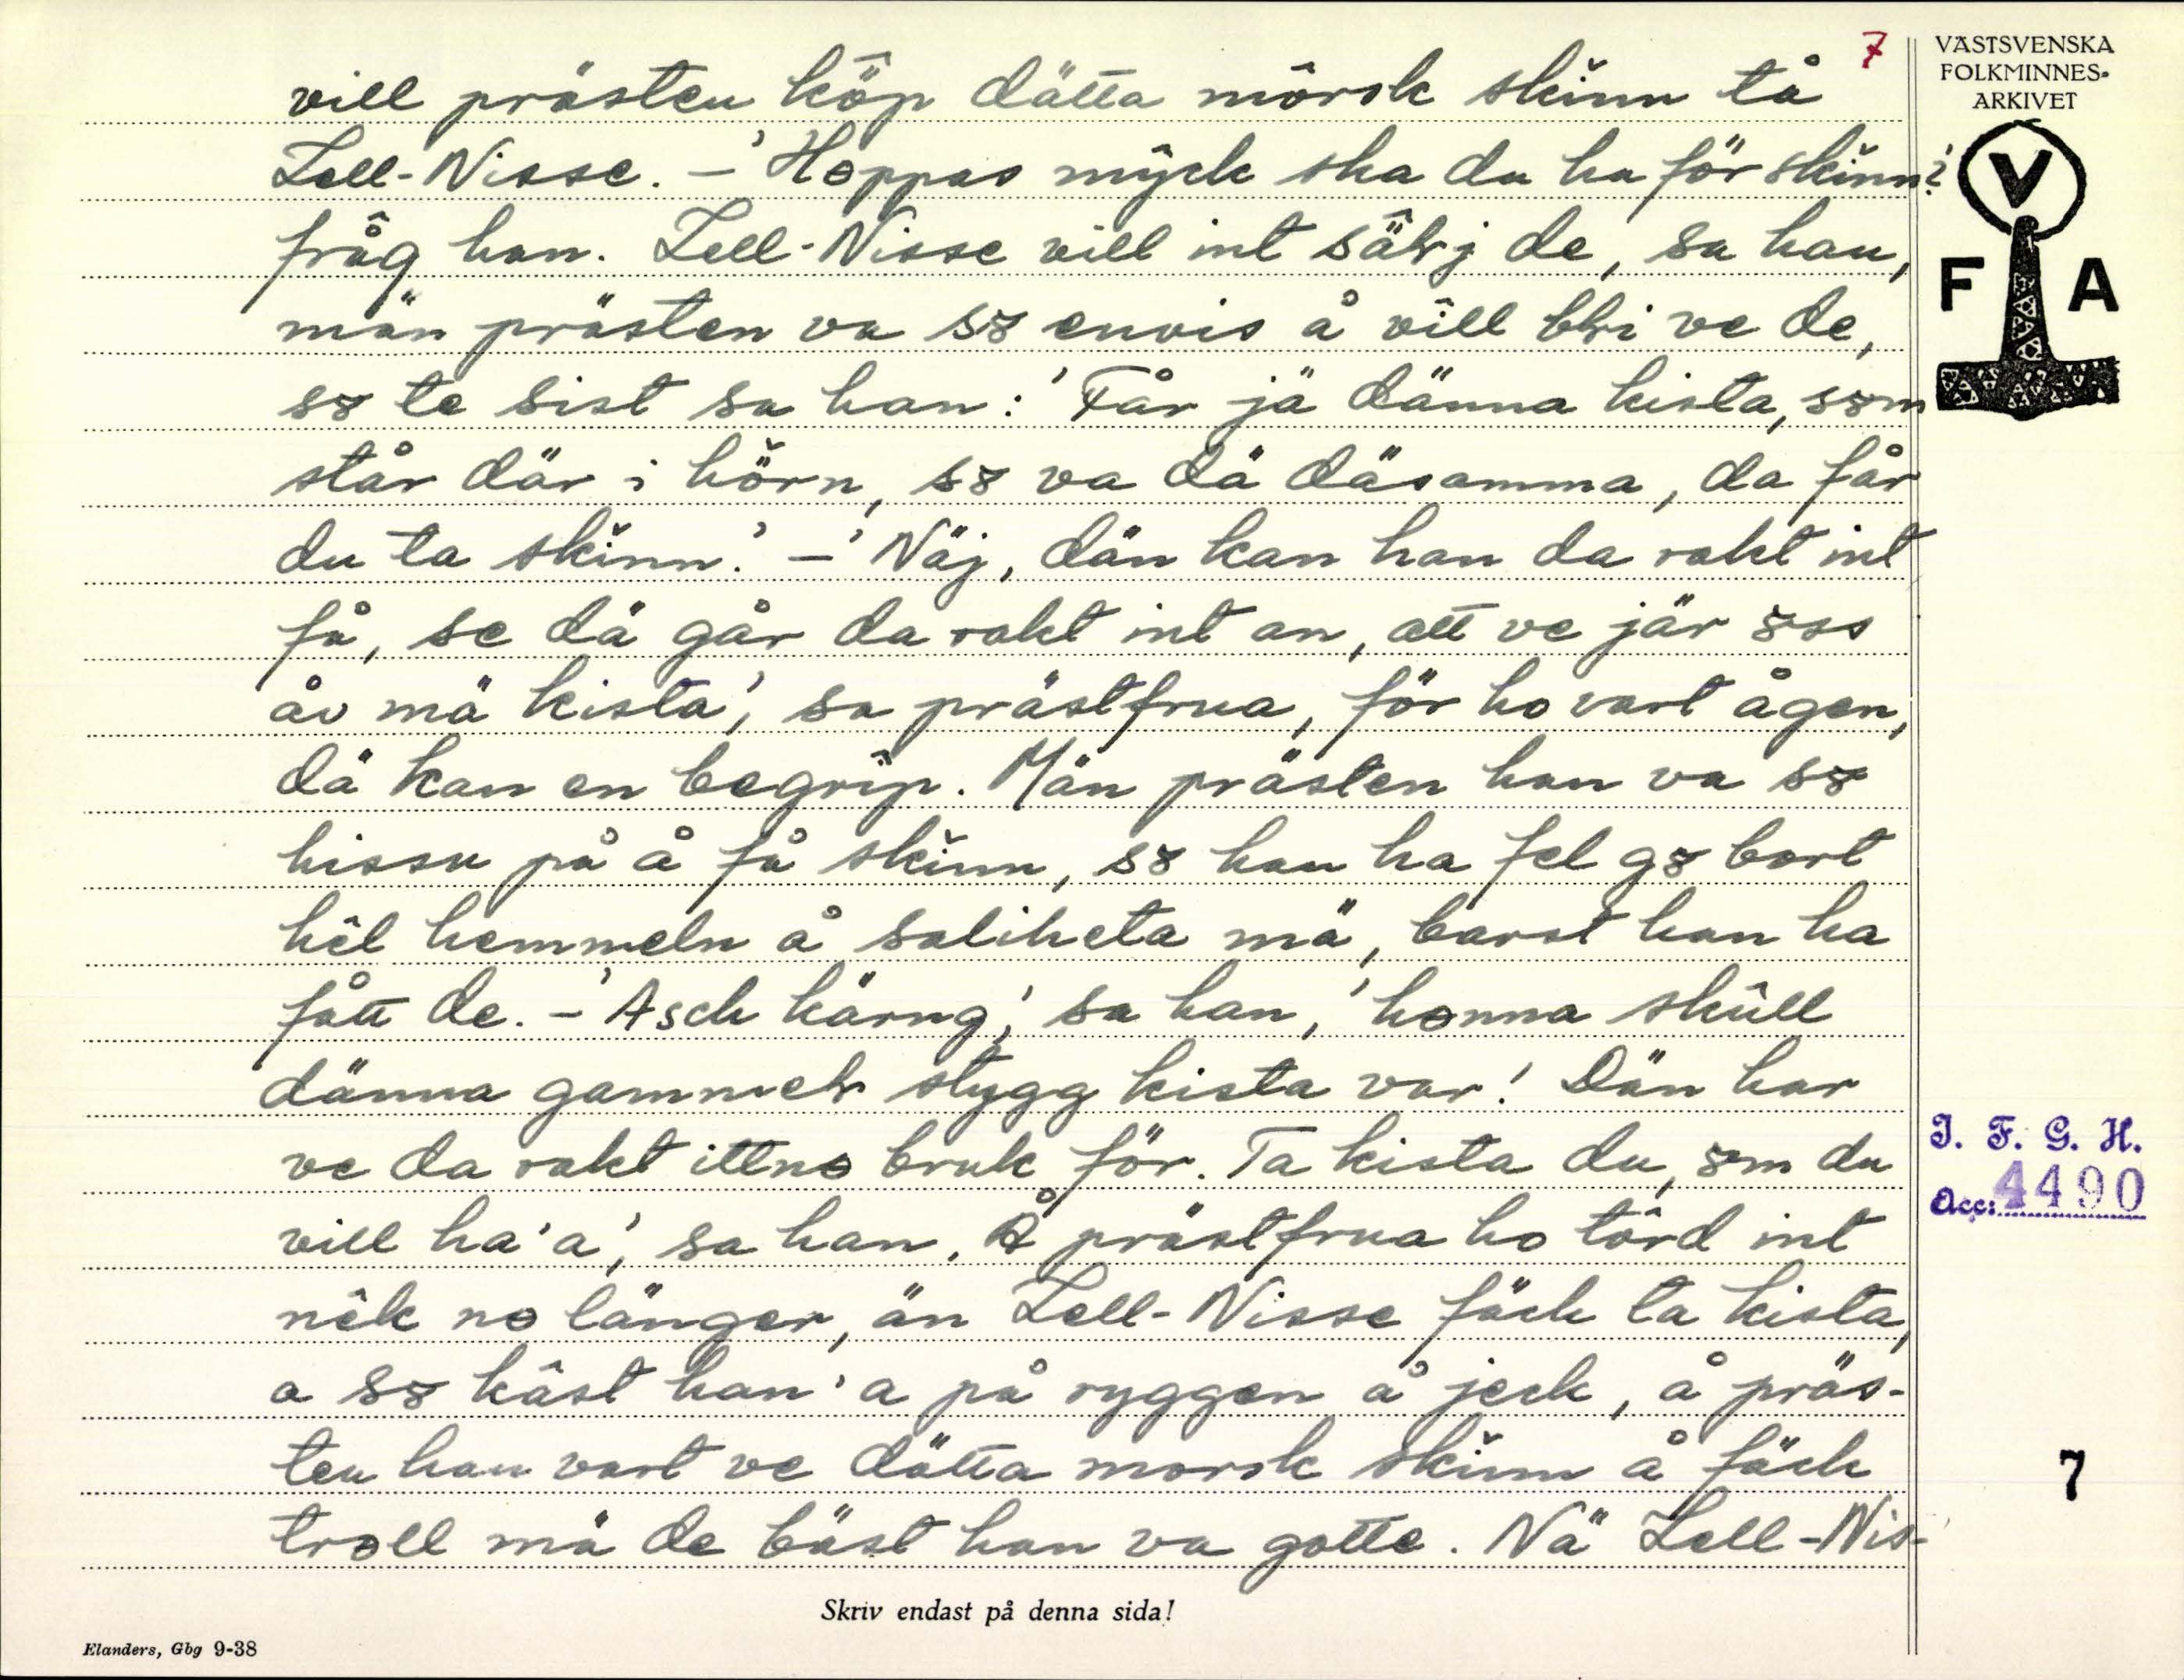 7
VÄSTSVENSKA
FOLKMINNES-
ARKIVET
V
F A
vill prästen kôp dätta môrsk skinn tå
Lell-Nisse. – 'Hoppas mŷck ska du ha för skinn'?
fråg han. Lell-Nisse vill int sälvj de, sa han,
män prästen va sꝏ envis å vill bli ve de,
sꝏ te sist sa han: 'Får jä dänna kista, sꝏm
står där i hörn, sꝏ va dä däsamma, da får
du ta skinn.' – 'Näj, dän kan han da rakt int
få, se dä går da rakt int an, att ve jär ꝏss
åv mä kista', sa prästfrua, för ho vart ågen,
dä kan en begrîp. Män prästen han va sꝏ
hissu på å få skinn, sꝏ han ha fel gꝏ bort
hêl hemmeln å saliheta mä, barst han ha
fått de. – 'Asch kärng', sa han, 'honna skûll
dänna gammelr stygg kista var! Dän har
ve da rakt ittno bruk för. Ta kista du, ꝏm du
vill ha'a', sa han. Å prästfrua ho tôrd int
nêk no länger, än Lell-Nisse fäck ta kista,
a sꝏ kâst han'a på ryggen å jeck, å präs-
ten han vart ve dätta morsk skinn å fäck
troll mä de bäst han va gotte. Nä Lell-Nis-
I. F. G. H.
Acc: 4490
7
Skriv endast på denna sida!
Elanders, Gbg 9-38